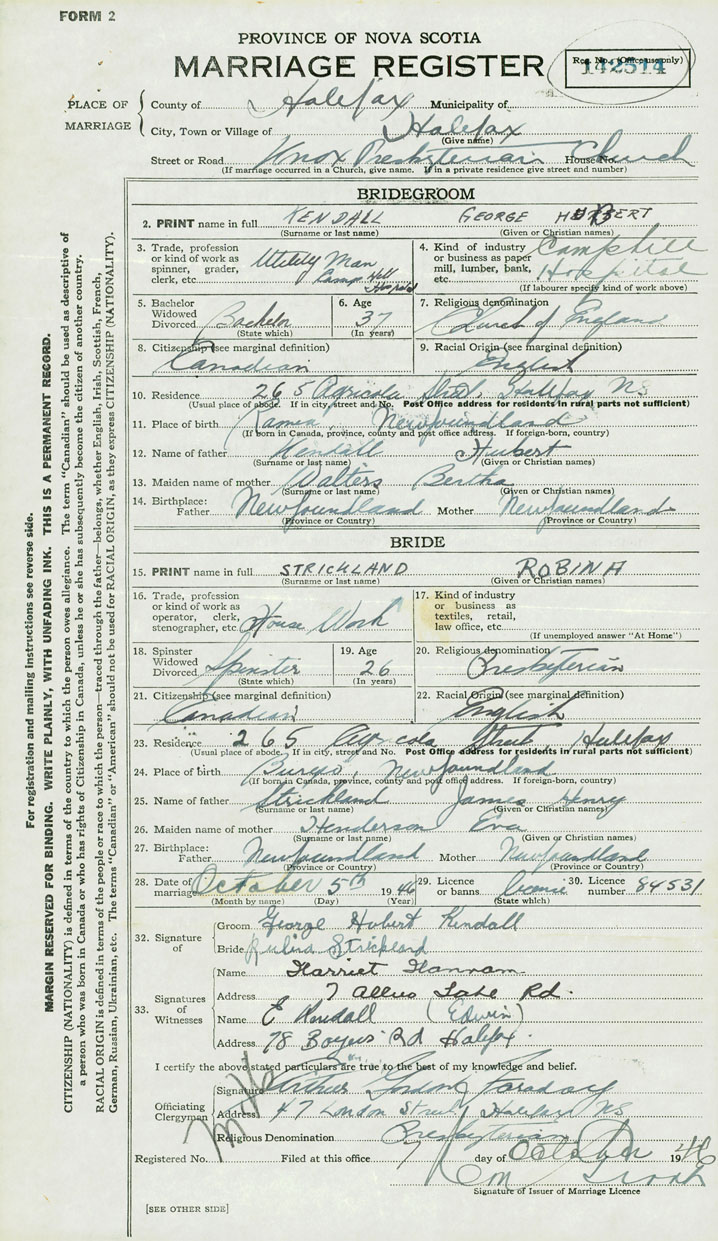 FORM 2
PROVINCE OF NOVA SCOTIA
MARRIAGE REGISTER
Reg. No. (Office use only)
142514
PLACE OF MARRIAGE
County of Halifax Municipality of
City, Town or Village of Halifax
(Give name)
Street or Road Knox Presbyterian House No. Church
(If marriage occurred in a Church, give name. If in a private residence give street and number)
BRIDEGROOM
2. PRINT name in full KENDALL GEORGE HUBERT
(Surname or last name) (Given or Christian names)
3. Trade, profession or kind of work as spinner, grader, clerk, etc. Utility Man Camp Hill Hospital
4. Kind of industry or business as paper mill, lumber, bank, etc. Camphill Hospital
(If labourer specify kind of work above)
5. Bachelor Widowed Divorced Bachelor (State which)
6. Age 37 (In years)
7. Religious denomination Church of England
8. Citizenship (see marginal definition) Canadian
9. Racial Origin (see marginal definition) English
10. Residence 265 Agricola Street, Halifax NS
(Usual place of abode. If in city, street and No. Post Office address for residents in rural parts not sufficient)
11. Place of birth Ramea, Newfoundland
(If born in Canada, province, county and post office address. If foreign-born, country)
12. Name of father Kendall Hubert
(Surname or last name) (Given or Christian names)
13. Maiden name of mother Walters Bertha
(Surname or last name) (Given or Christian names)
14. Birthplace: Father Newfoundland Mother Newfoundland
(Province or Country) (Province or Country)
BRIDE
15. PRINT name in full STRICKLAND ROBINA
(Surname or last name) (Given or Christian names)
16. Trade, profession or kind of work as operator, clerk, stenographer, etc. House Work
17. Kind of industry or business as textiles, retail, law office, etc.
(If unemployed answer "At Home")
18. Spinster Widowed Divorced Spinster (State which)
19. Age 26 (In years)
20. Religious denomination Presbyterian
21. Citizenship (see marginal definition) Canadian
22. Racial Origin (see marginal definition) English
23. Residence 265 Agricola Street Halifax
(Usual place of abode. If in city, street and No. Post Office address for residents in rural parts not sufficient)
24. Place of birth Burgeo, Newfoundland
(If born in Canada, province, county and post office address. If foreign-born, country)
25. Name of father Strickland James Henry
(Surname or last name) (Given or Christian names)
26. Maiden name of mother Henderson Eva
(Surname or last name) (Given or Christian names)
27. Birthplace: Father Newfoundland Mother Newfoundland
(Province or Country) (Province or Country)
28. Date of marriage October 5th 1946
(Month by name) (Day) (Year)
29. Licence or banns license (State which)
30. Licence number 84531
32. Signature of
Groom George Hubert Kendall
Bride Rubina Strickland
33. Signatures of Witnesses
Name Harriet Hannam
Address 7 Lake Rd.
Name E Kendall (Edwin)
Address 78 Rd Halifax.
I certify the above stated particulars are true to the best of my knowledge and belief.
Officiating Clergyman
Signature Arthur Gordon Faraday
Address 47 London Street, Halifax NS
Religious Denomination Presbyterian
Registered No. Filed at this office 7 day of October 1946
Signature of Issuer of Marriage Licence
[SEE OTHER SIDE]
For registration and mailing instructions see reverse side.
MARGIN RESERVED FOR BINDING. WRITE PLAINLY, WITH UNFADING INK. THIS IS A PERMANENT RECORD.
CITIZENSHIP (NATIONALITY) is defined in terms of the country to which the person owes allegiance. The term "Canadian" should be used as descriptive of
a person who was born in Canada or who has rights of Citizenship in Canada, unless he or she has subsequently become the citizen of another country.
RACIAL ORIGIN is defined in terms of the people or race to which the person—traced through the father—belongs, whether English, Irish, Scottish, French,
German, Russian, Ukrainian, etc. The terms "Canadian" or "American" should not be used for RACIAL ORIGIN, as they express CITIZENSHIP (NATIONALITY).